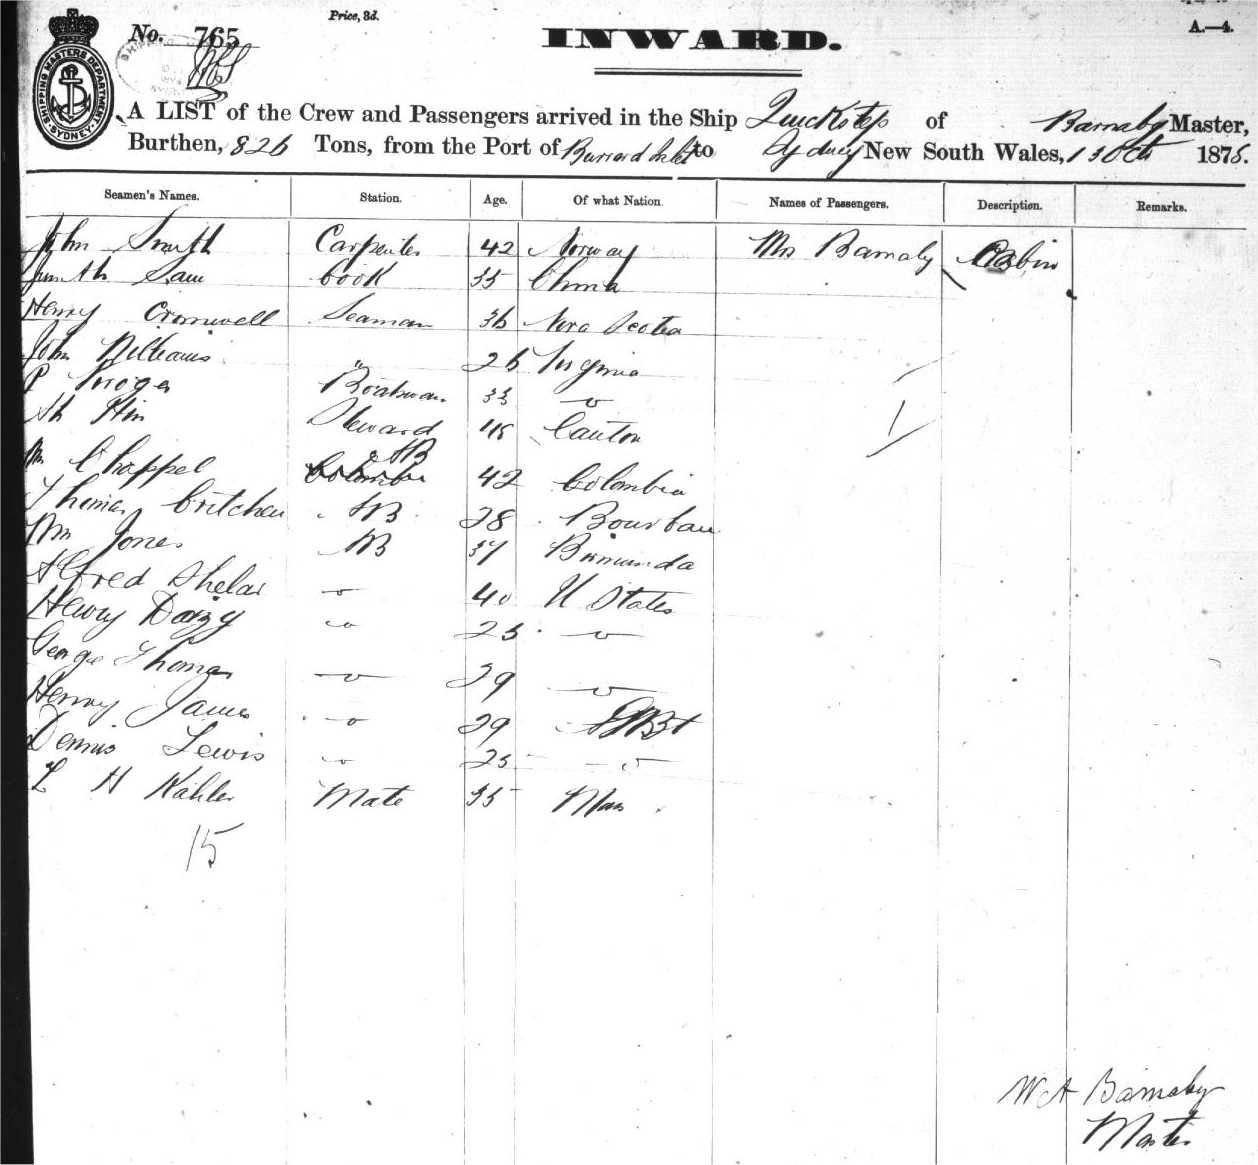 Price, 3d.
A.—4.
No. 765
INWARD.
SHIPPING MASTERS DEPARTMENT SYDNEY
A LIST of the Crew and Passengers arrived in the Ship Quickstep of Barnaby Master,
Burthen, 826 Tons, from the Port of Burrard Inlet to Sydney New South Wales, 13 Oct 1875.
Seamen's Names. Station. Age. Of what Nation. Names of Passengers. Description. Remarks.
John Smith Carpenter 42 Norway Mrs Barnaby Cabin
Sam Cook 35 China
Henry Cromwell Seaman 36 Nova Scotia
John Williams " 26 Virginia
P Boatswain 33 o
Ah Him Steward Canton
Wm Chappel AB 42 Colombia
Thomas Critchen AB 28 Bourbau
Wm Jones AB 37 Bumunda
Alfred Shelar o 40 U States
Henry Daizy o 25 o
George Thomas o 29 o
Henry James o 29
Dennis Lewis o 25 o
L H Kahler Mate 35 Mas
15
W A Barnaby
Master